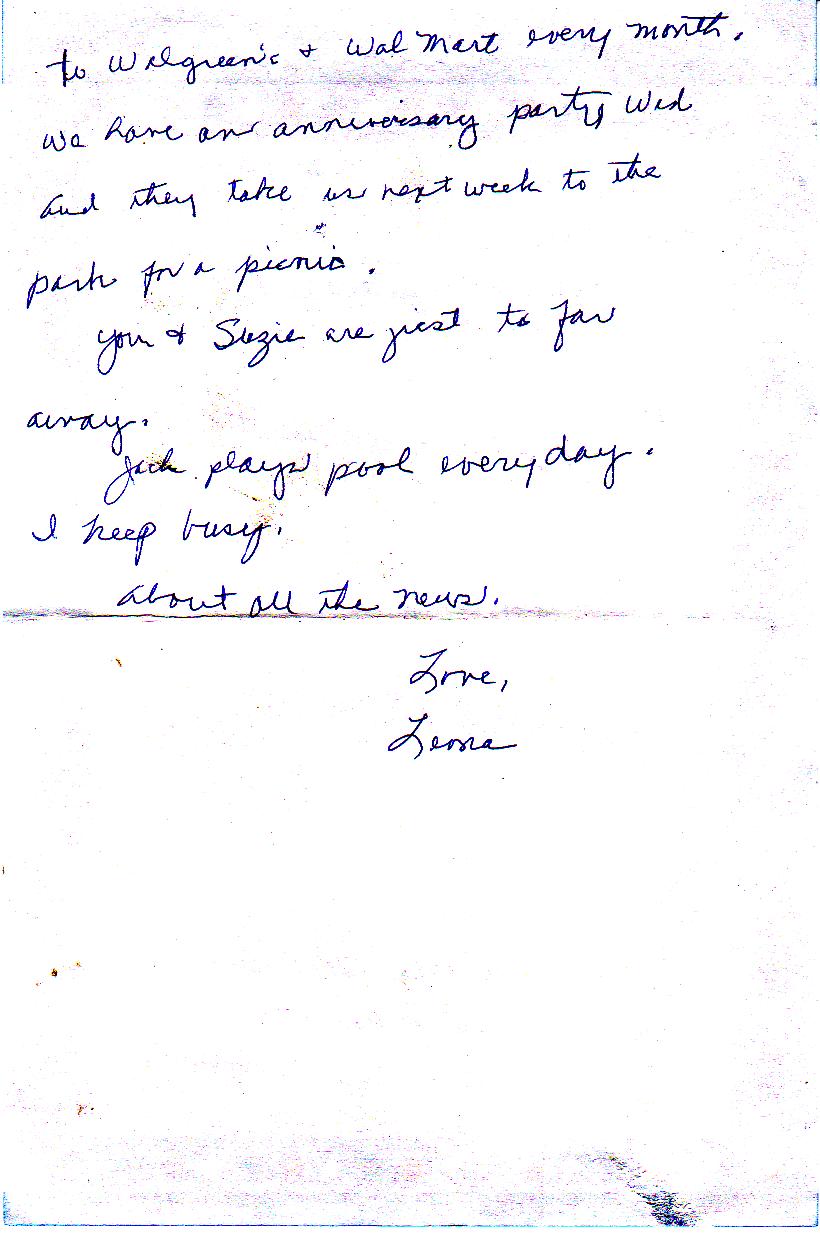 to Walgreen's + Wal Mart every month.
We have an anniversary party Wed
and they take us next week to the
park for a picnic.
You & Suzie are just to far
away.
Jack plays pool everyday.
I keep busy.
About all the news.
Love,
Leona